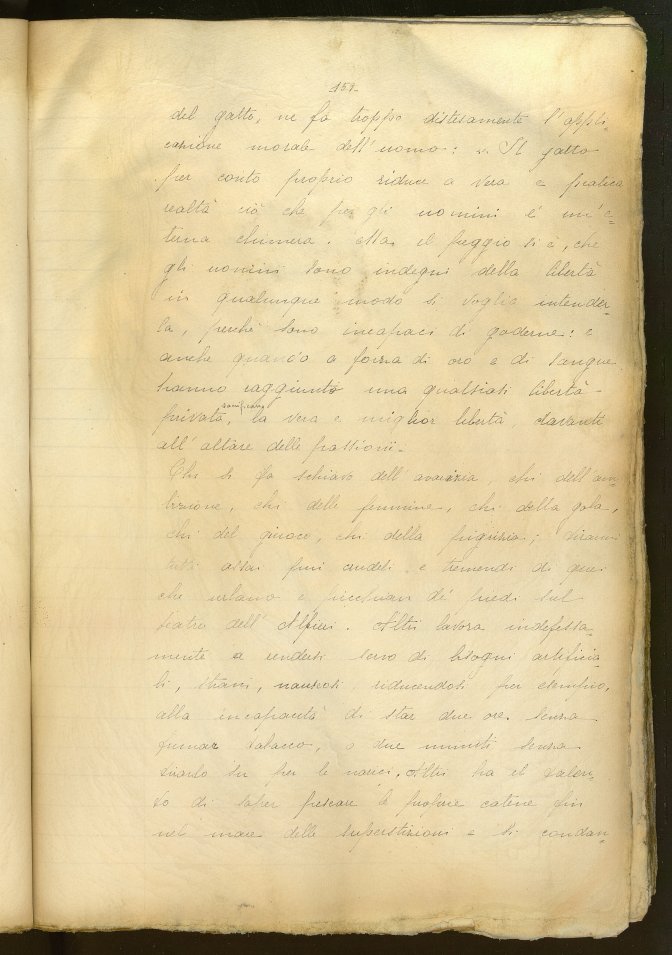 159-
del gatto, ne fa troppo distesamente l'appli-
cazione morale dell'uomo: "Il gatto
per conto proprio riduce a vera e pratica
realtà ciò che per gli uomini è un'e-
terna chimera. Ma il peggio si è, che
gli uomini sono indegni della libertà
in qualunque modo si voglia intender-
la, perchè sono incapaci di goderne: e
anche quando a forza di oro e di sangue
hanno raggiunto una qualsiasi libertà
sacrificano
privata, la vera e miglior libertà davanti
all'altare delle passioni.
Chi si fa schiavo dell'avarizia, chi dell'am-
bizione, chi delle femmine, chi della gola,
chi del giuoco, chi della pigrizia; tiranni
tutti assai più crudeli e tremendi di quei
che urlano e picchian de' piedi sul
teatro dell'Alfieri. Altri lavora indefessa-
mente a rendersi servo di bisogni artificia-
li, strani, nauseosi riducendosi per esempio,
alla incapacità di star due ore senza
fumar tabacco, o due minuti senza
tirarlo su per le narici. Altri ha il talen-
to di saper pescare le proprie catene fin
nel mare delle superstizioni e si condan-